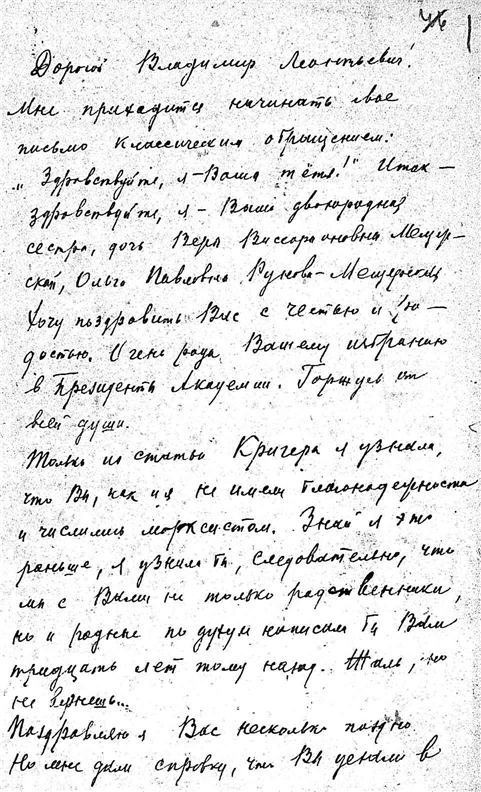 46
Дорогой Владимир Леонтьевич!
Мне приходится начинать свое
письмо классическим обращением:
"Здравствуйте, я – Ваша тётя!" Итак –
здравствуйте, я – Ваша двоюродная
сестра, дочь Веры Виссарионовны Мещер-
ской, Ольга Павловна Рунова-Мещерская
Хочу поздравить Вас с честью и ра-
достью. Очень рада Вашему избранию
в Президенты Академии. Горжусь от
всей души.
Только из статьи Кригера я узнала,
что Вы, как и я не имели благонадежности
и числились марксистом. Знай я это
раньше, я узнала бы, следовательно, что
мы с Вами не только родственники,
но и родные по духу и написала бы Вам
тридцать лет тому назад. Жаль, но
не вернешь...
Поздравляю я Вас несколько поздно
Но мне дали справку, что Вы уехали в